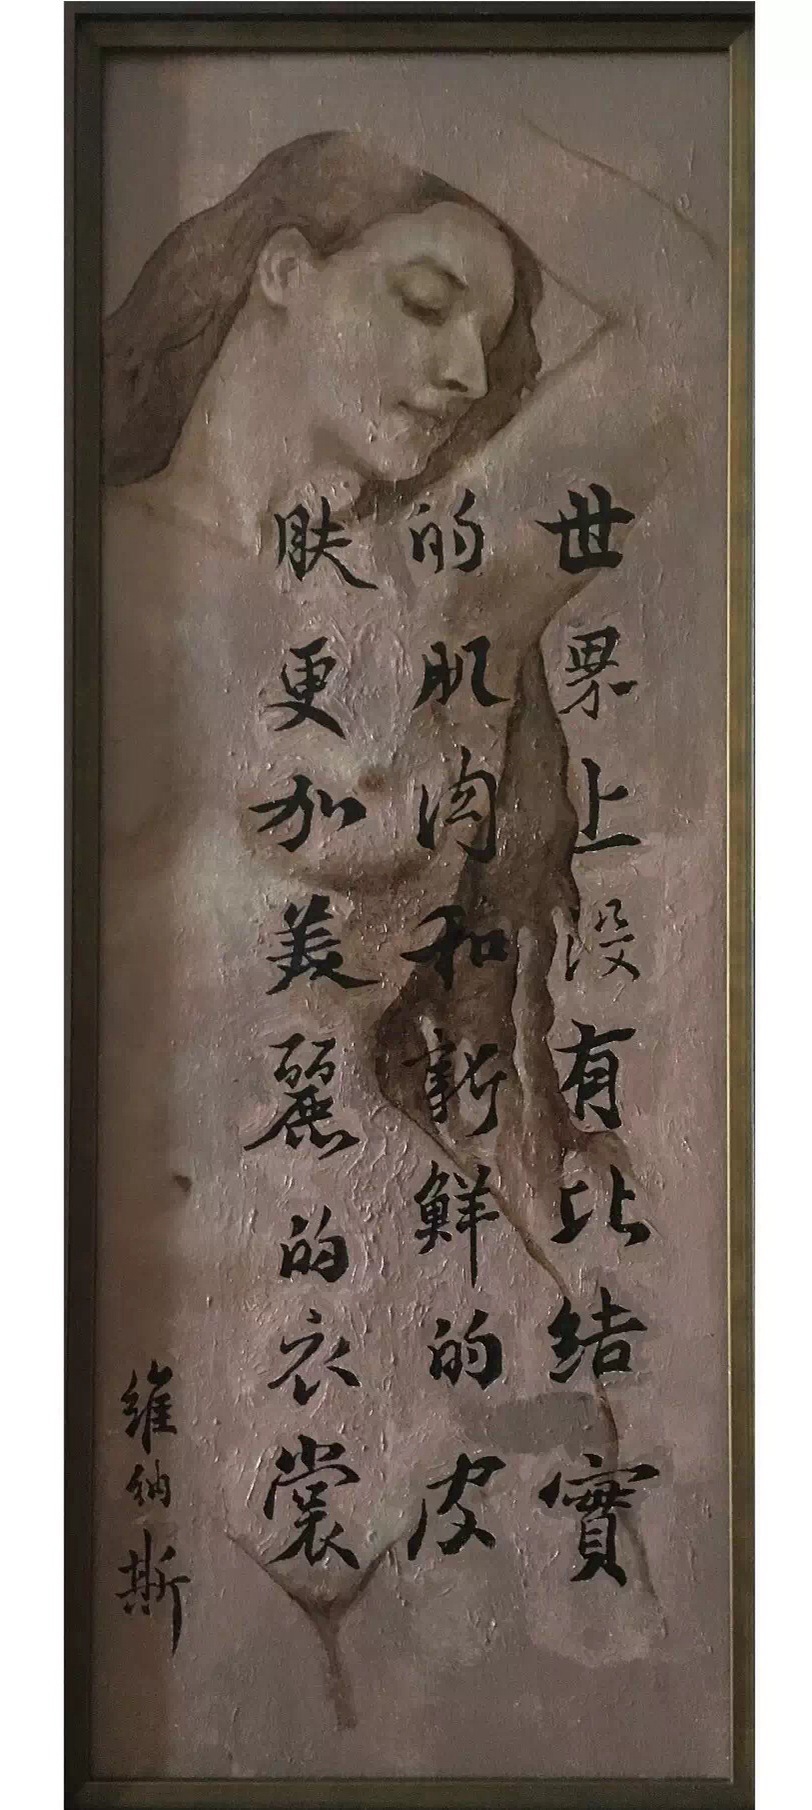 世界上没有比结實
的肌肉和新鲜的皮
肤更加美麗的衣裳
維纳斯